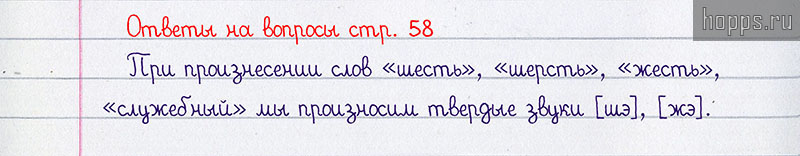 Ответы на вопросы стр. 58
hopps.ru
При произнесении слов «шесть», «шерсть», «жесть»,
«служебный» мы произносим твердые звуки [шэ], [жэ].